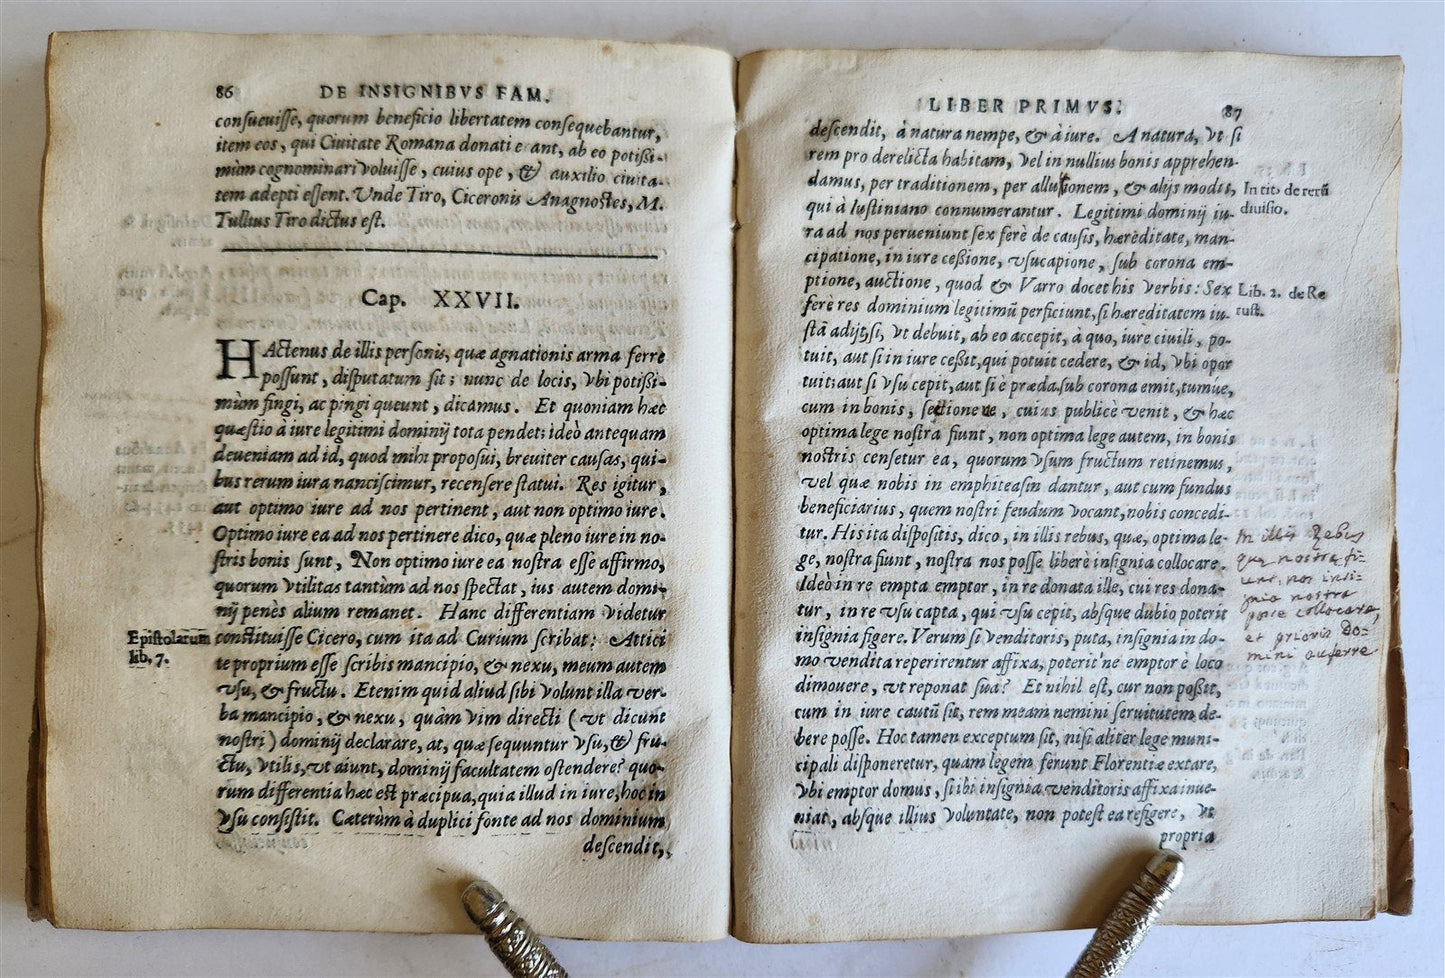 86 DE INSIGNIBVS FAM.
consueuisse, quorum beneficio libertatem consequebantur,
item eos, qui Ciuitate Romana donati erant, ab eo potißi-
mùm cognominari voluisse, cuius ope, & auxilio ciuita-
tem adepti essent. Vnde Tiro, Ciceronis Anagnostes, M.
Tullius Tiro dictus est.
Cap. XXVII.
HActenus de illis personis, quæ agnationis arma ferre
possunt, disputatum sit: nunc de locis, vbi potißi-
mùm fingi, ac pingi queunt, dicamus. Et quoniam hæc
quæstio à iure legitimi dominij tota pendet: ideò antequam
deueniam ad id, quod mihi proposui, breuiter causas, qui-
bus rerum iura nanciscimur, recensere statui. Res igitur,
aut optimo iure ad nos pertinent, aut non optimo iure.
Optimo iure ea ad nos pertinere dico, quæ pleno iure in no-
stris bonis sunt, Non optimo iure ea nostra esse affirmo,
quorum vtilitas tantùm ad nos spectat, ius autem domi-
nij penès alium remanet. Hanc differentiam videtur
Epistolarum
lib. 7.
constituisse Cicero, cum ita ad Curium scribat: Attici
te proprium esse scribis mancipio, & nexu, meum autem
vsu, & fructu. Etenim quid aliud sibi volunt illa ver-
ba mancipio, & nexu, quàm vim directi (vt dicunt
nostri) dominij declarare, at, quæ sequuntur vsu, & fru-
ctu, vtilis, vt aiunt, dominij facultatem ostendere? quo-
rum differentia hæc est præcipua, quia illud in iure, hoc in
vsu consistit. Cæterùm à duplici fonte ad nos dominium
descendit,
LIBER PRIMVS. 87
descendit, à natura nempe, & à iure. A natura, vt si
rem pro derelicta habitam, vel in nullius bonis apprehen-
damus, per traditionem, per allusionem, & alijs modis,
In tit. de rerū
diuisio.
qui à Iustiniano connumerantur. Legitimi dominij iu-
ra ad nos perueniunt sex ferè de causis, hæreditate, man-
cipatione, in iure ceßione, vsucapione, sub corona em-
ptione, auctione, quod & Varro docet his verbis: Sex
Lib. 2. de Re
rust.
ferè res dominium legitimū perficiunt, si hæreditatem iu-
stā adijt, si, vt debuit, ab eo accepit, à quo, iure ciuili, po-
tuit, aut si in iure ceßit, qui potuit cedere, & id, vbi opor
tuit: aut si vsu cepit, aut si è præda sub corona emit, tumue,
cum in bonis, sectioneue, cuius publicè venit, & hæc
optima lege nostra fiunt, non optima lege autem, in bonis
nostris censetur ea, quorum vsum fructum retinemus,
vel quæ nobis in emphiteasin dantur, aut cum fundus
beneficiarius, quem nostri feudum vocant, nobis concedi-
tur. His ita dispositis, dico, in illis rebus, quæ, optima le-
ge, nostra fiunt, nostra nos posse liberè insignia collocare.
Ideò in re empta emptor, in re donata ille, cui res dona-
tur, in re vsu capta, qui vsu cepit, absque dubio poterit
insignia figere. Verum si venditoris, puta, insignia in do-
mo vendita reperirentur affixa, poterit'ne emptor è loco
dimouere, vt reponat sua? Et nihil est, cur non poßit,
cum in iure cautū sit, rem meam nemini seruitutem de-
bere posse. Hoc tamen exceptum sit, nisi aliter lege muni-
cipali disponeretur, quam legem ferunt Florentiæ extare,
vbi emptor domus, si ibi insignia venditoris affixa inue-
niat, absque illius voluntate, non potest ea refigere, vt
propria
In illis Rebus
que nostre fi-
unt, nos insi-
gnia nostra
posse collocare,
et prioris Do-
mini auferre